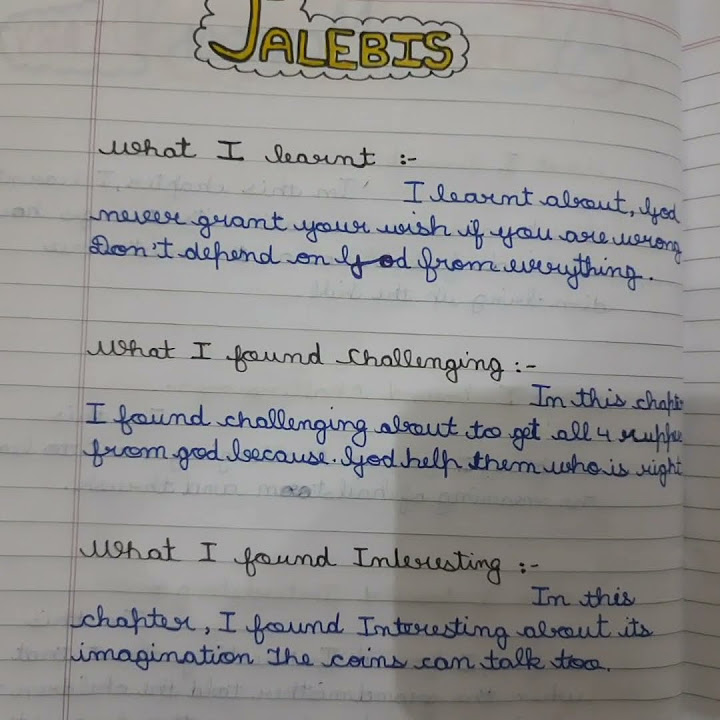 JALEBIS
What I learnt :-
I learnt about, God
never grant your wish if you are wrong
Don't depend on God from everything.
What I found Challenging :-
In this chapte
I found challenging about to get all 4 ruppee
from god because. God help them who is right
What I found Interesting :-
In this
chapter, I found Interesting about its
imagination The coins can talk too.